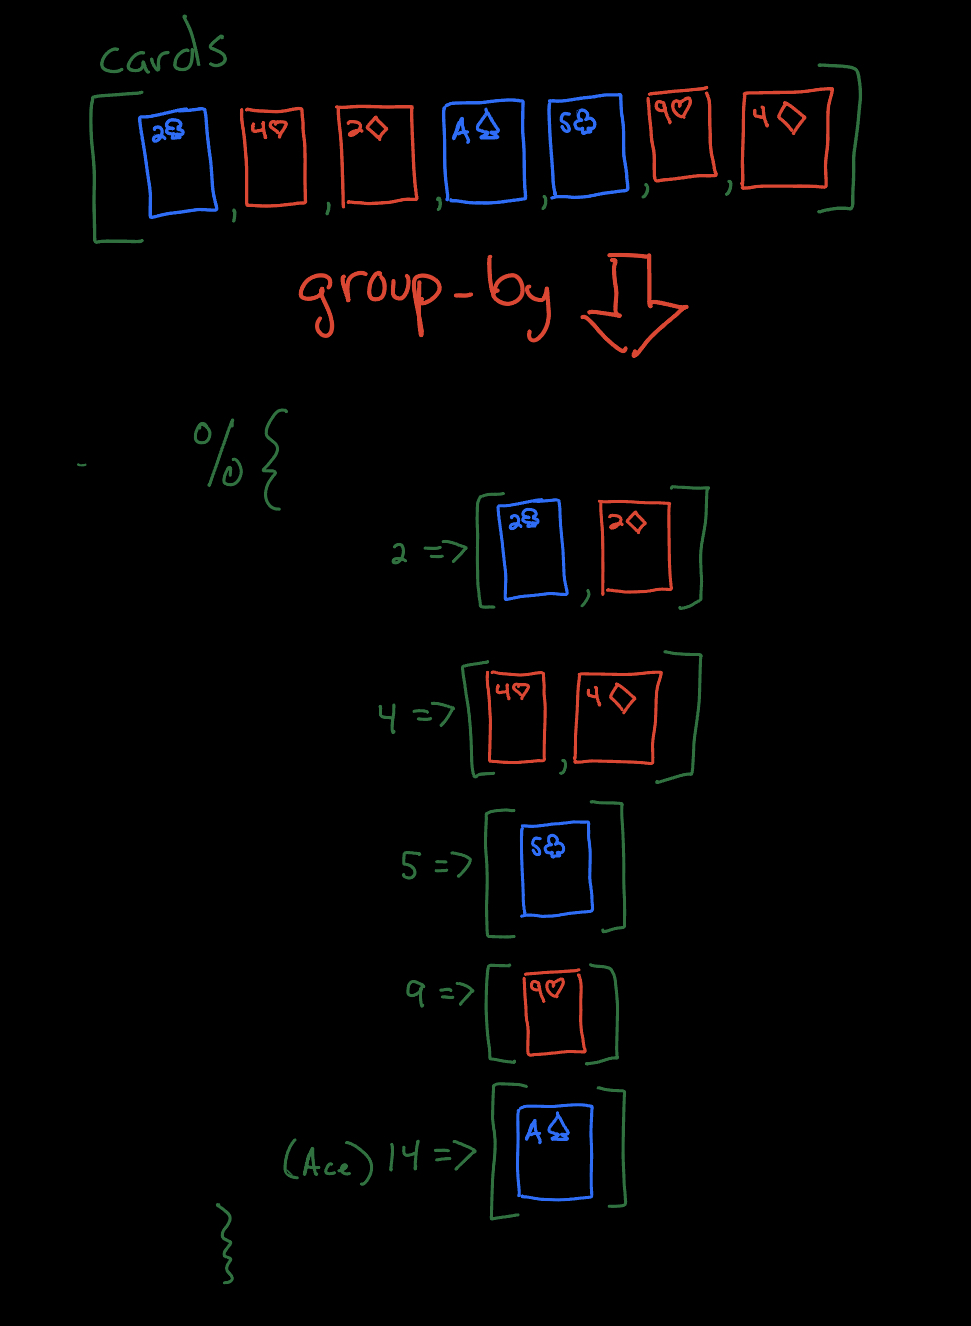 cards
[2♣, 4♡, 2♢, A♤, 5♧, 9♡, 4♢]
group_by
%{
2 => [2♣, 2♢]
4 => [4♡, 4♢]
5 => [5♧]
9 => [9♡]
(Ace) 14 => [A♤]
}